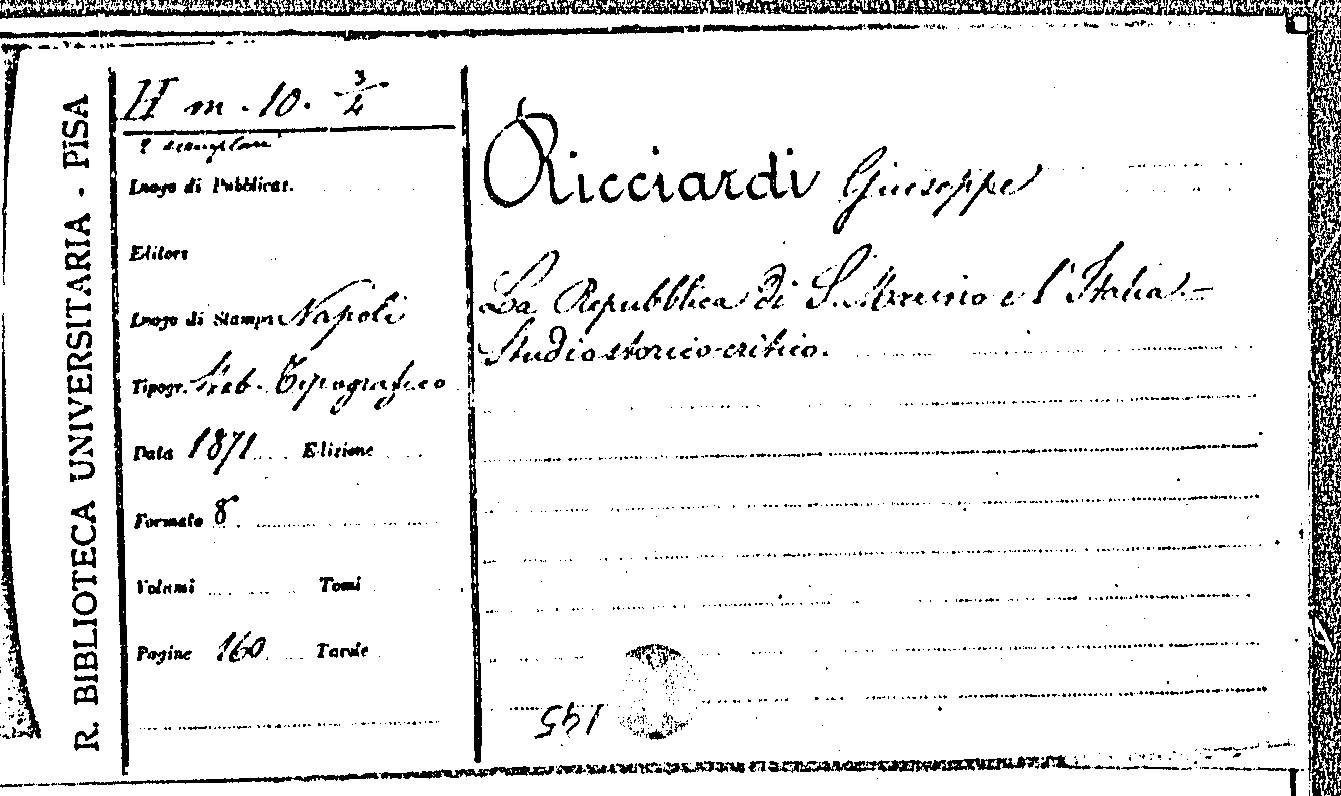 R. BIBLIOTECA UNIVERSITARIA - PISA
H m. 10. 3/4
2 esemplari
Luogo di Pubblicaz.
Editore
Luogo di Stampa Napoli
Tipogr. Stab. Tipografico
Data 1871 Edizione
Formato 8
Volumi Tomi
Pagine 160 Tavole
Ricciardi Giuseppe
La Repubblica di S. Marino e l'Italia.–
Studio storico-critico.
195